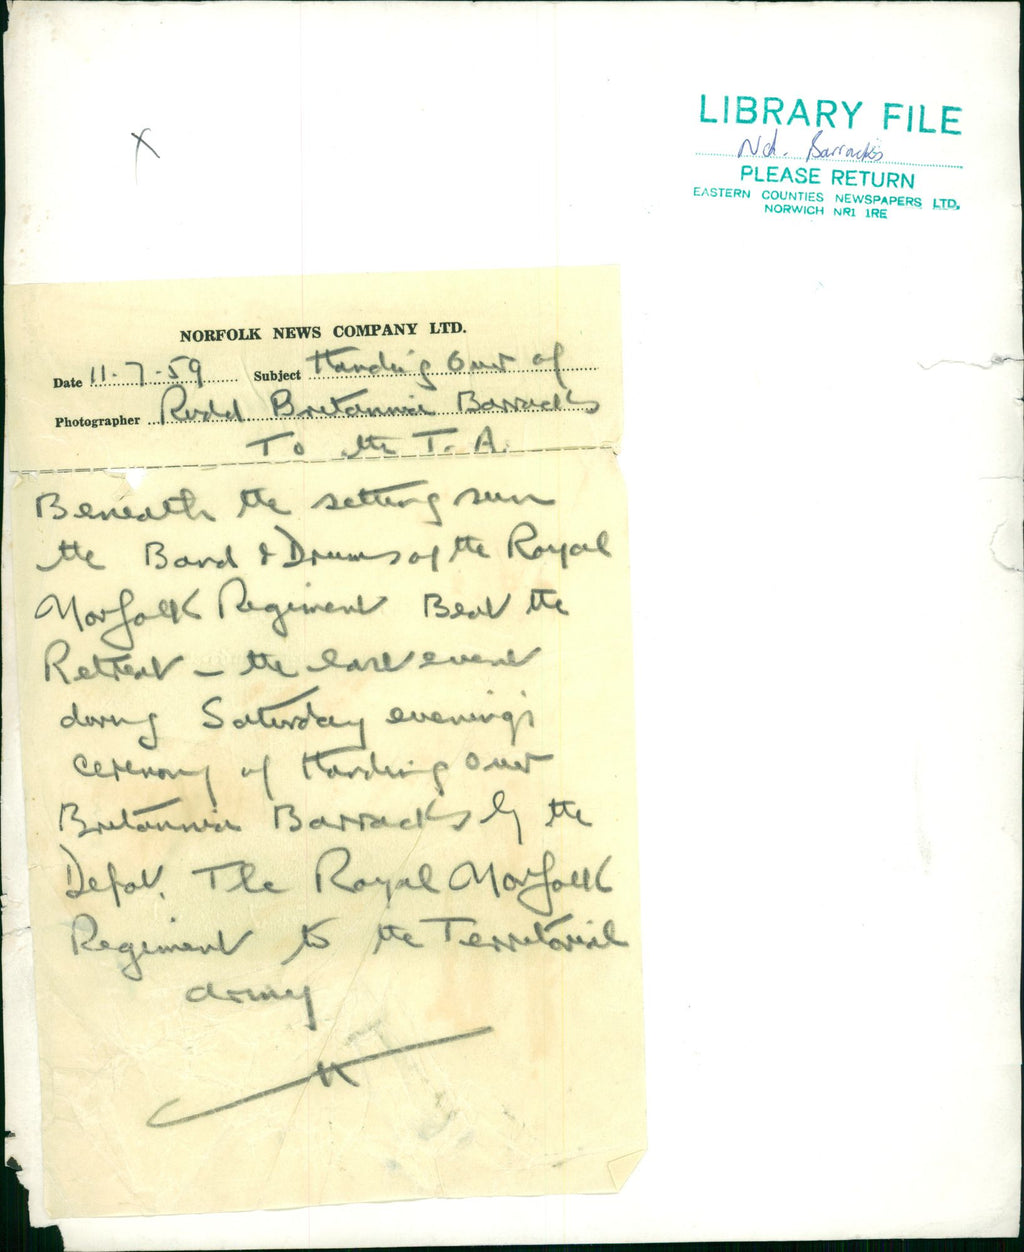 X
LIBRARY FILE
Nch. Barracks
PLEASE RETURN
EASTERN COUNTIES NEWSPAPERS LTD.
NORWICH NR1 1RE
NORFOLK NEWS COMPANY LTD.
Date 11-7-59 Subject Handing Over of
Photographer Rudd Britannia Barracks
To the T.A.
Beneath the setting sun
the Band & Drums of the Royal
Norfolk Regiment Beat the
Retreat - the last event
during Saturday evening's
ceremony of Handing Over
Britannia Barracks by the
Depot, The Royal Norfolk
Regiment to the Territorial
army